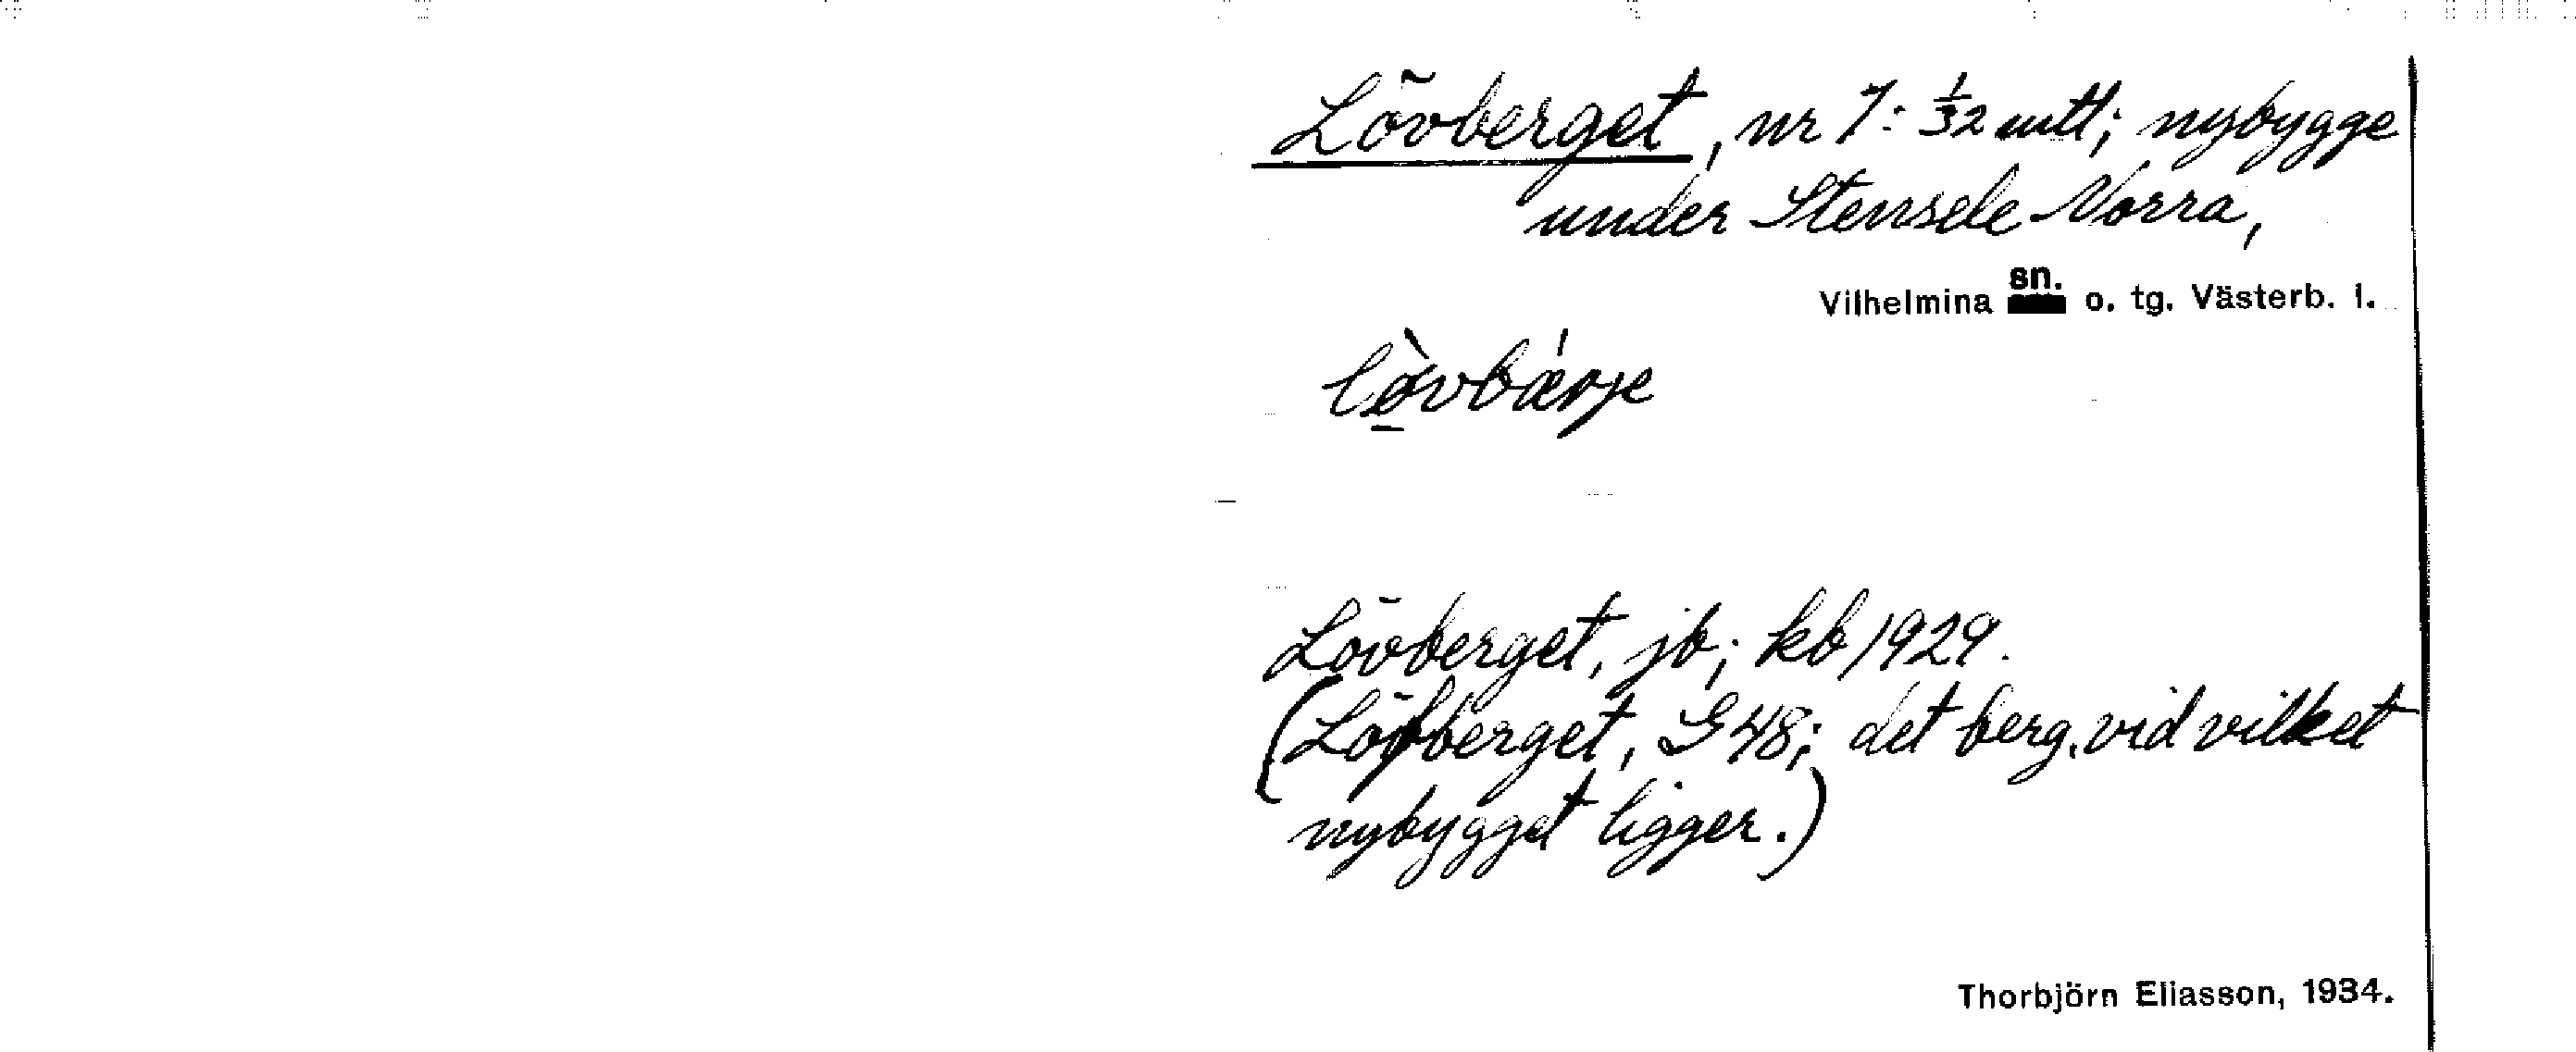 Lövberget, nr 7: 1/32 mtl; nybygge
under Stensele Norra,
Vilhelmina sn. o. tg. Västerb. l.
Lövberget, jb; kb 1929.
(Löfberget, G 48; det berg, vid vilket
nybygget ligger.)
Thorbjörn Eliasson, 1934.